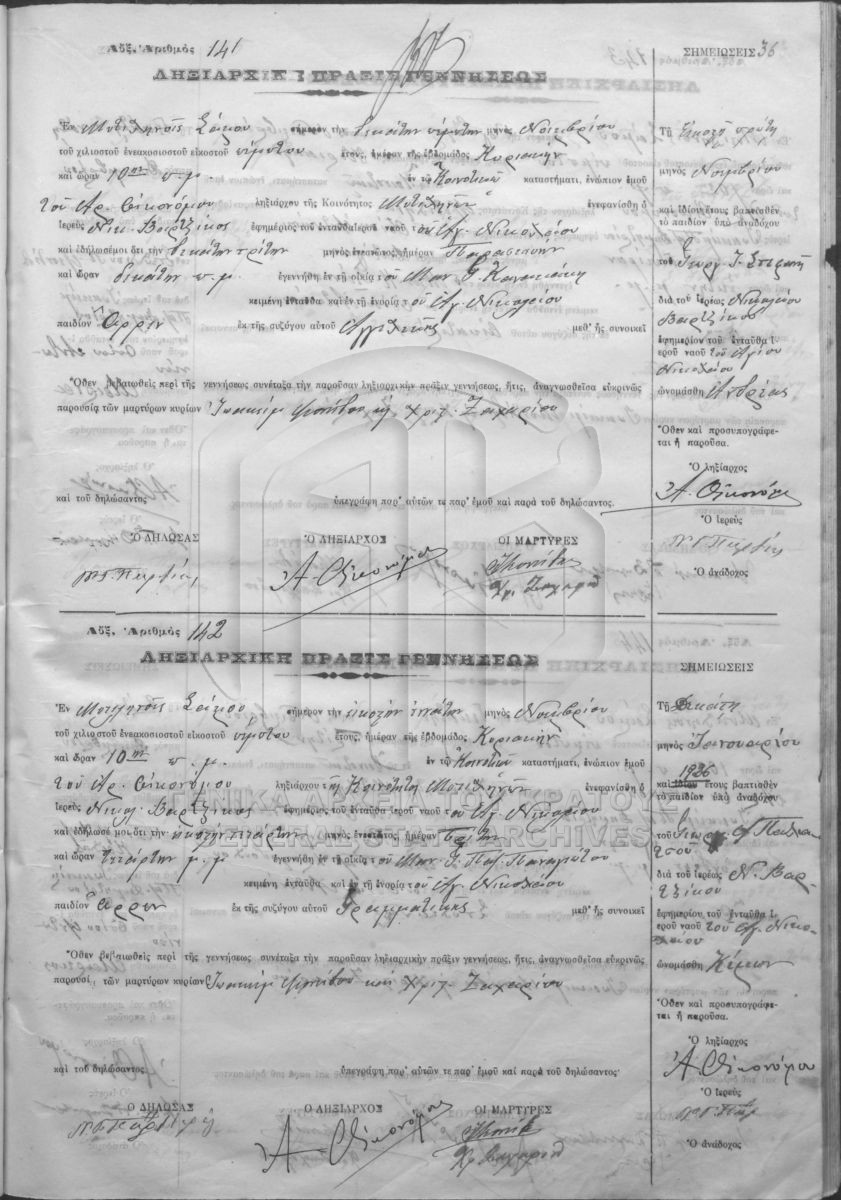 Αὔξ. Ἀριθμὸς 141
ΣΗΜΕΙΩΣΕΙΣ 36
ΛΗΞΙΑΡΧΙΚΗ ΠΡΑΞΙΣ ΓΕΝΝΗΣΕΩΣ
Ἐν Μυτιληνιοῖς Σάμου σήμερον τὴν δεκάτην πέμπτην μηνὸς Νοεμβρίου
τοῦ χιλιοστοῦ ἐνεακοσιοστοῦ εἰκοστοῦ πέμπτου ἔτους, ἡμέραν τῆς ἑβδομάδος Κυριακὴν
καὶ ὥραν 10ην π. μ. ἐν τῷ Κοινοτικῷ καταστήματι, ἐνώπιον ἐμοῦ
τοῦ Αρ. Οἰκονόμου ληξιάρχου τῆς Κοινότητος Μυτιληνιῶν ἐνεφανίσθη ὁ
ἱερεὺς Νικ. Βαρτζίκος ἐφημέριος τοῦ ἐνταῦθα ἱεροῦ ναοῦ τοῦ Ἁγ. Νικολάου
καὶ ἐδήλωσέ μοι ὅτι τὴν δεκάτην τρίτην μηνὸς ἐνεστῶτος, ἡμέραν Παρασκευὴν
καὶ ὥραν δεκάτην π. μ. ἐγεννήθη ἐν τῇ οἰκίᾳ τοῦ Μαν. Γ.
κειμένῃ ἐνταῦθα καὶ ἐν τῇ ἐνορίᾳ τοῦ Ἁγ. Νικολάου
παιδίον Ἄρρεν ἐκ τῆς συζύγου αὐτοῦ Ἀγγελικῆς μεθ᾿ ἧς συνοικεῖ
Ὅθεν βεβαιωθεὶς περὶ τῆς γεννήσεως συνέταξα τὴν παροῦσαν ληξιαρχικὴν πρᾶξιν γεννήσεως, ἥτις, ἀναγνωσθεῖσα εὐκρινῶς
παρουσίᾳ τῶν μαρτύρων κυρίων Ἰωακεὶμ καὶ Χρ. Ζαχαρίου
καὶ τοῦ δηλώσαντος ὑπεγράφη παρ᾿ αὐτῶν τε παρ᾿ ἐμοῦ καὶ παρὰ τοῦ δηλώσαντος.
Ὁ ΔΗΛΩΣΑΣ Ὁ ΛΗΞΙΑΡΧΟΣ ΟΙ ΜΑΡΤΥΡΕΣ
Α. Οἰκονόμου
Τῇ εἰκοστῇ πρώτῃ
μηνὸς Νοεμβρίου
καὶ ἰδίου ἔτους βαπτισθὲν
τὸ παιδίον ὑπὸ ἀναδόχου
τοῦ Γεωργ. Ι.
διὰ τοῦ ἱερέως Νικολάου
Βαρτζίκου
ἐφημερίου τοῦ ἐνταῦθα ἱ-
εροῦ ναοῦ τοῦ Ἁγίου
Νικολάου
ὠνομάσθη Ἀνδρέας
Ὅθεν καὶ προσυπογράφε-
ται ἡ παροῦσα.
Ὁ ληξίαρχος
Α. Οἰκονόμου
Ὁ ἱερεὺς
Ὁ ἀνάδοχος
Αὔξ. Ἀριθμὸς 142
ΛΗΞΙΑΡΧΙΚΗ ΠΡΑΞΙΣ ΓΕΝΝΗΣΕΩΣ
ΣΗΜΕΙΩΣΕΙΣ
Ἐν Μυτιληνιοῖς Σάμου σήμερον τὴν εἰκοστὴν ἐννάτην μηνὸς Νοεμβρίου
τοῦ χιλιοστοῦ ἐνεακοσιοστοῦ εἰκοστοῦ πέμπτου ἔτους, ἡμέραν τῆς ἑβδομάδος Κυριακὴν
καὶ ὥραν 10ην π. μ. ἐν τῷ Κοινοτικῷ καταστήματι, ἐνώπιον ἐμοῦ
τοῦ Αρ. Οἰκονόμου ληξιάρχου τῆς Κοινότητος Μυτιληνιῶν ἐνεφανίσθη ὁ
ἱερεὺς Νικολ. Βαρτζίκος ἐφημέριος τοῦ ἐνταῦθα ἱεροῦ ναοῦ τοῦ Ἁγ. Νικολάου
καὶ ἐδήλωσέ μοι ὅτι τὴν εἰκοστὴν τετάρτην μηνὸς ἐνεστῶτος, ἡμέραν Τρίτην
καὶ ὥραν τετάρτην μ. μ. ἐγεννήθη ἐν τῇ οἰκίᾳ τοῦ Μαν. Ι. Παπ. Παναγιώτου
κειμένῃ ἐνταῦθα καὶ ἐν τῇ ἐνορίᾳ τοῦ Ἁγ. Νικολάου
παιδίον Ἄρρεν ἐκ τῆς συζύγου αὐτοῦ Γραμματικῆς μεθ᾿ ἧς συνοικεῖ
Ὅθεν βεβαιωθεὶς περὶ τῆς γεννήσεως συνέταξα τὴν παροῦσαν ληξιαρχικὴν πρᾶξιν γεννήσεως, ἥτις, ἀναγνωσθεῖσα εὐκρινῶς
παρουσίᾳ τῶν μαρτύρων κυρίων Ἰωακεὶμ καὶ Χρ. Ζαχαρίου
καὶ τοῦ δηλώσαντος ὑπεγράφη παρ᾿ αὐτῶν τε παρ᾿ ἐμοῦ καὶ παρὰ τοῦ δηλώσαντος
Ὁ ΔΗΛΩΣΑΣ Ὁ ΛΗΞΙΑΡΧΟΣ ΟΙ ΜΑΡΤΥΡΕΣ
Α. Οἰκονόμου
Τῇ Δεκάτῃ
μηνὸς Ἰανουαρίου
1926
καὶ ἰδίου ἔτους βαπτισθὲν
τὸ παιδίον ὑπὸ ἀναδόχου
διὰ τοῦ ἱερέως Ν. Βαρ-
τζίκου
ἐφημερίου τοῦ ἐνταῦθα ἱ-
εροῦ ναοῦ τοῦ Ἁγ. Νικο-
λάου
ὠνομάσθη Κίμων
Ὅθεν καὶ προσυπογράφε-
ται ἡ παροῦσα.
Ὁ ληξίαρχος
Α. Οἰκονόμου
Ὁ ἱερεὺς
Ὁ ἀνάδοχος
ΓΕΝΙΚΑ ΑΡΧΕΙΑ ΤΟΥ ΚΡΑΤΟΥΣ
GENERAL STATE ARCHIVES